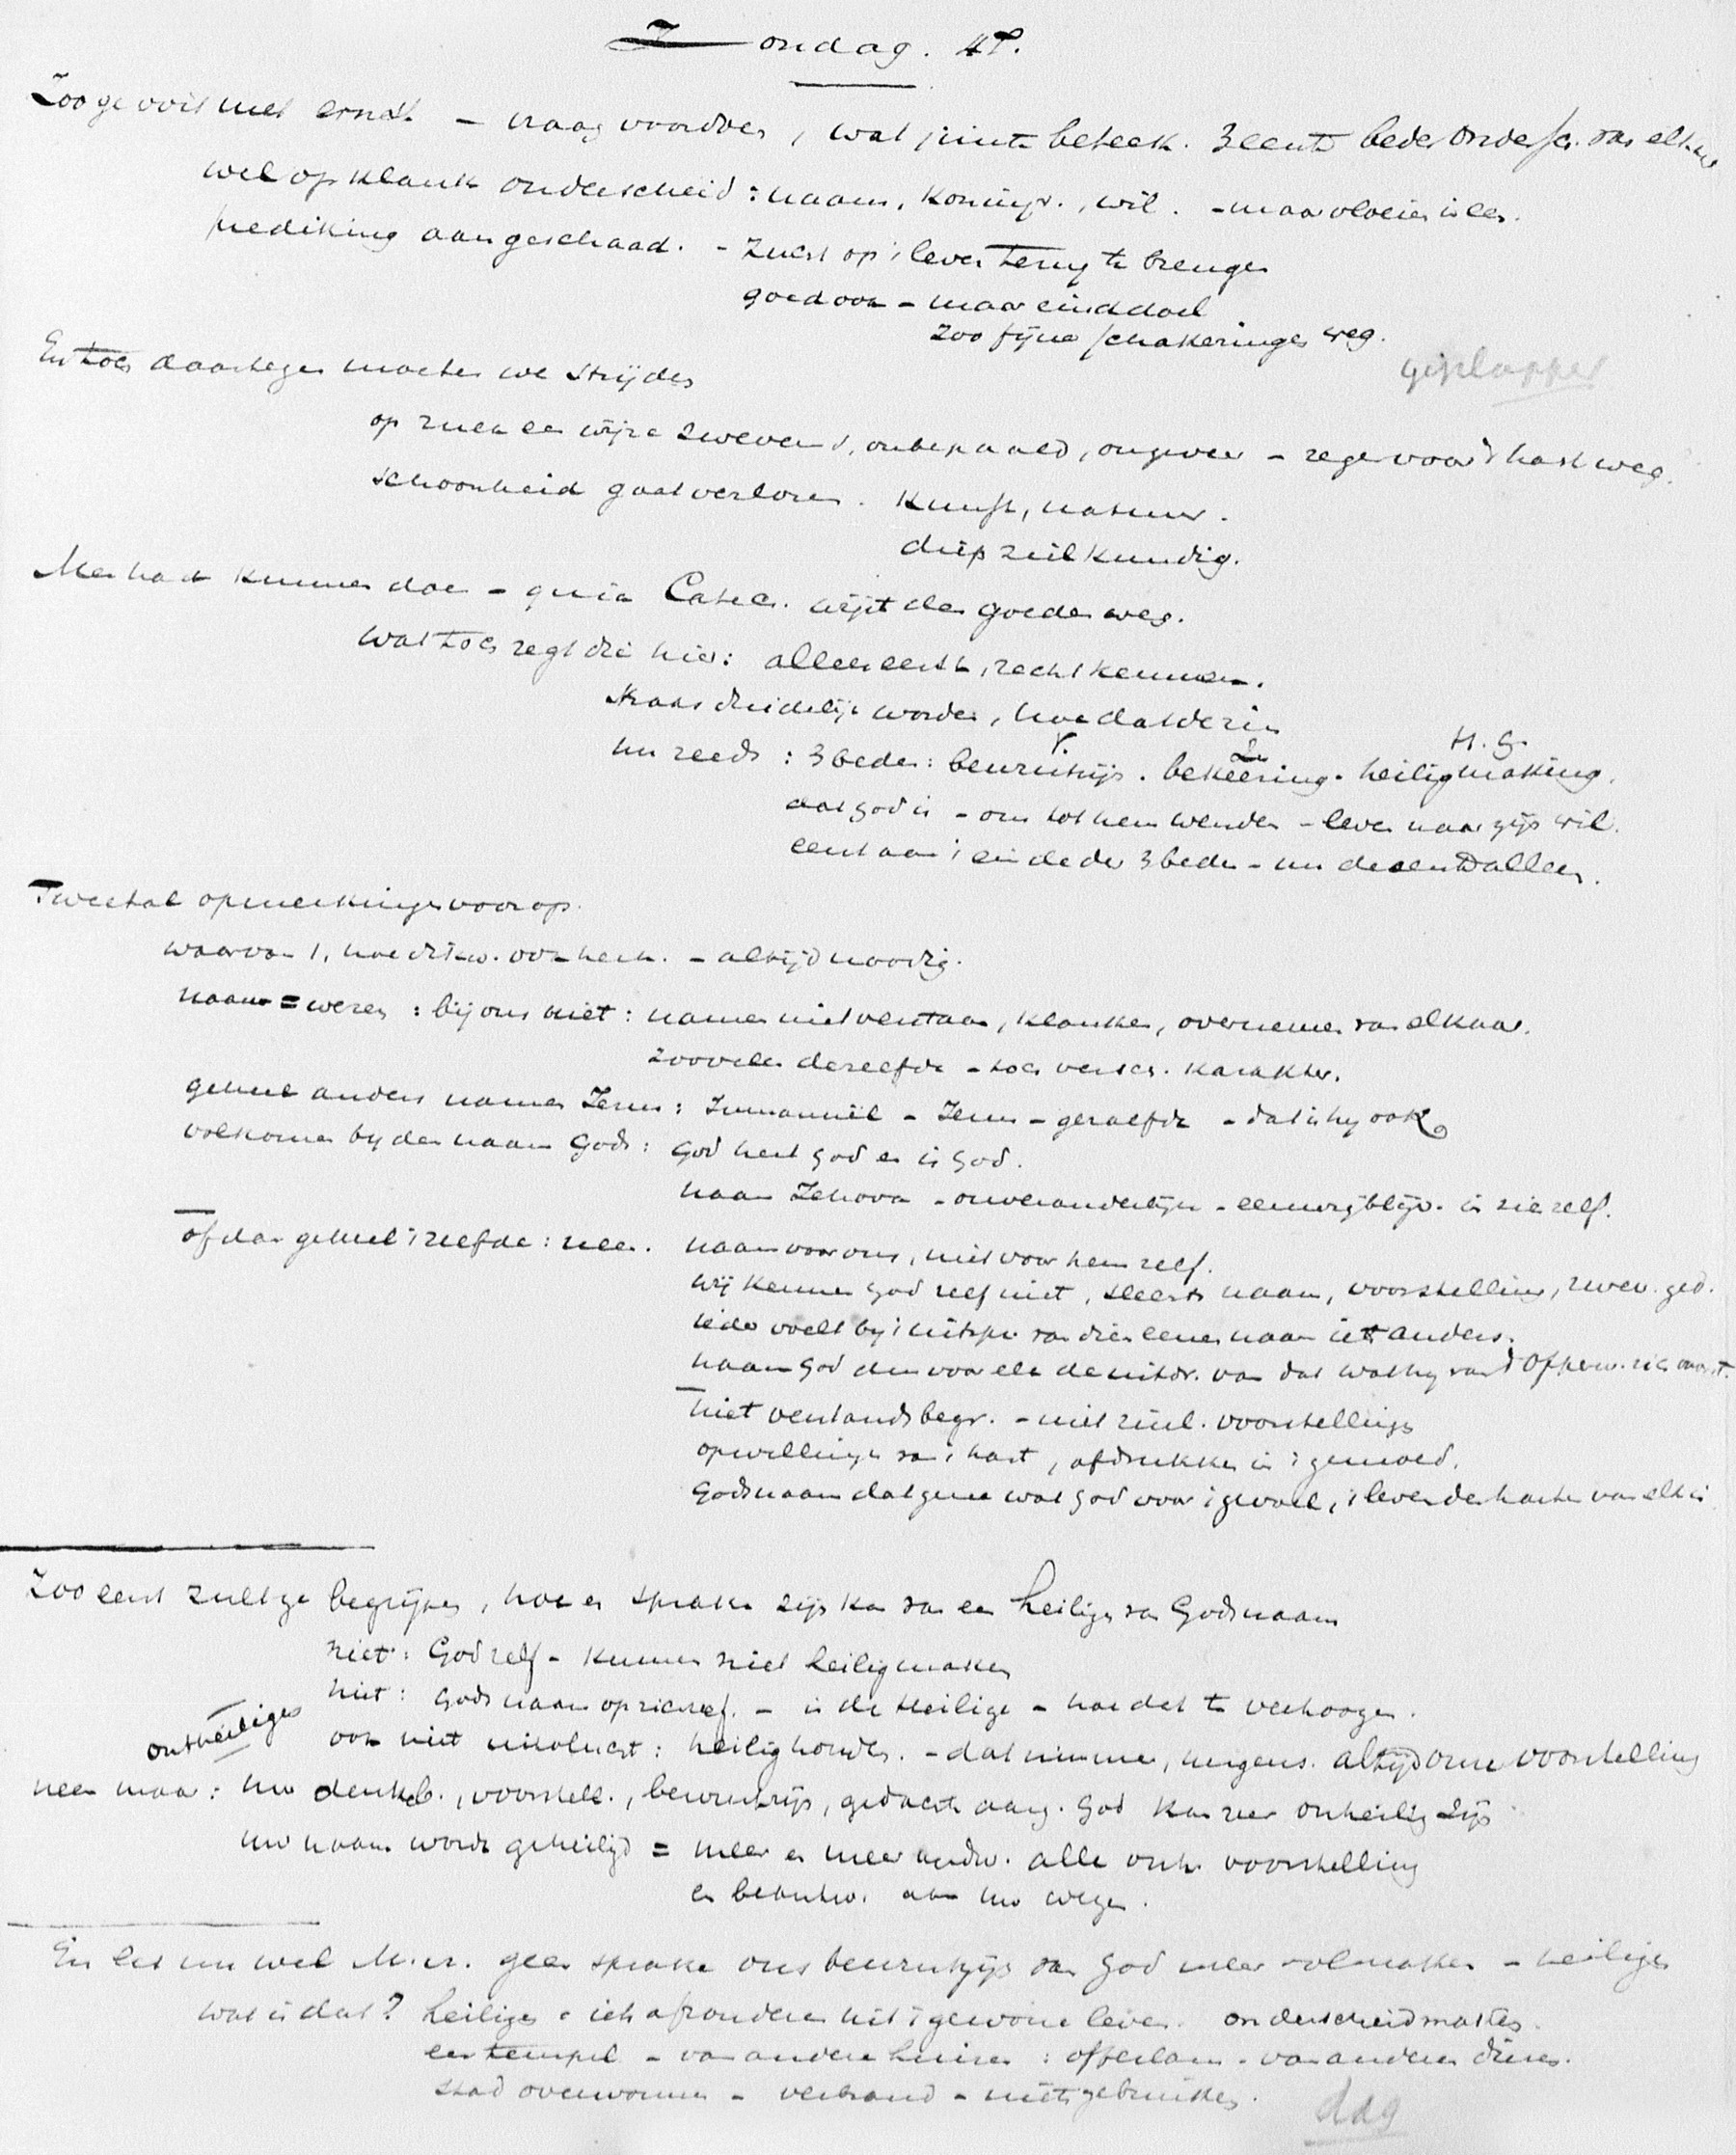 Zondag. 47.
Zoo ge ooit met ernst - vraag voordoet, wat juiste beteek. 3 eerste beden van elkaar
wel op klank onderscheid: naam, koningr., wil. - maar vloeien in een.
prediking aan geschaad. - Juist op 't leven terug te brengen
goed ook - maar einddoel
Zoo fijne schakeringen weg.
En toch daartegen moeten we strijden
geplapper
op zulk een wijze zwevend, onbepaald, ongeveer - zegen voor 't hart weg.
schoonheid gaat verloren. Kunst, natuur.
diep zielkundig.
Men had kunnen doen - Catech. wijst den goeden weg.
Wat toch zegt die hier: allereerst, recht kennen.
straks duidelijk worden, hoe dat dezen
nu reeds: 3 beden: bewustzijn. bekeering. heiligmaking.
V. H. G.
dat God is - ons tot hem wenden - leven naar zijn wil.
eerst aan 't einde der 3 beden - nu deze alleen.
Tweetal opmerkingen voorop.
waarvan 1, - altijd noodig.
naam = wezen: bij ons niet: namen niet verstaan, klanken, overnemen van elkaar.
zoovelen dezelfde - toch versch. karakter.
geheel anders namen Jezus: Immanuël - Jezus - gezalfde - dat is hy ook
volkomen by den naam Gods: God heet God en is God.
naam Jehova - onveranderlijk - eeuwig blijv. in zichzelf.
of dan geheel 't zelfde: neen. naam voor ons, niet voor hem zelf.
wij kennen God zelf niet, slechts naam, voorstelling, zwev. ged.
ieder voelt by 't uitspr. van dien eenen naam iets anders.
naam God dus voor elk de uitdr. van dat wat hy van d'Opperw. zich voorst.
niet verstandsbegr. - niet ziel. voorstellingen
opwellingen van 't hart, afdrukken in 't gemoed.
Godsnaam datgene wat God voor 't gevoel, 't leven des harten van elk is
Zoo eerst zult ge begrijpen, hoe er sprake zijn kan van een heiligen van Godsnaam
niet: God zelf - kunnen niet heilig maken
niet: Gods naam op zichzelf. - is de Heilige - hoe dat te verhoogen.
ontheiligen
ook niet uitsluit: heilig houden. - dat nimmer, nergens. altijd onze voorstelling
neen maar: uw denkb., voorstell., bewustzijn, gedachte aang. God kan zeer onheilig zijn
uw naam worde geheiligd = meer en meer alle onh. voorstelling
en beantw. aan uw wezen.
En let nu wel M. geen sprake ons bewustzijn van God meer volmaken - heiligen
wat is dat? heiligen = iets afzonderen uit 't gewone leven. onderscheid maken.
een tempel - van andere huizen: offerlam - van andere dieren.
stad overwonnen - verbrand - niets gebruiken.
dag